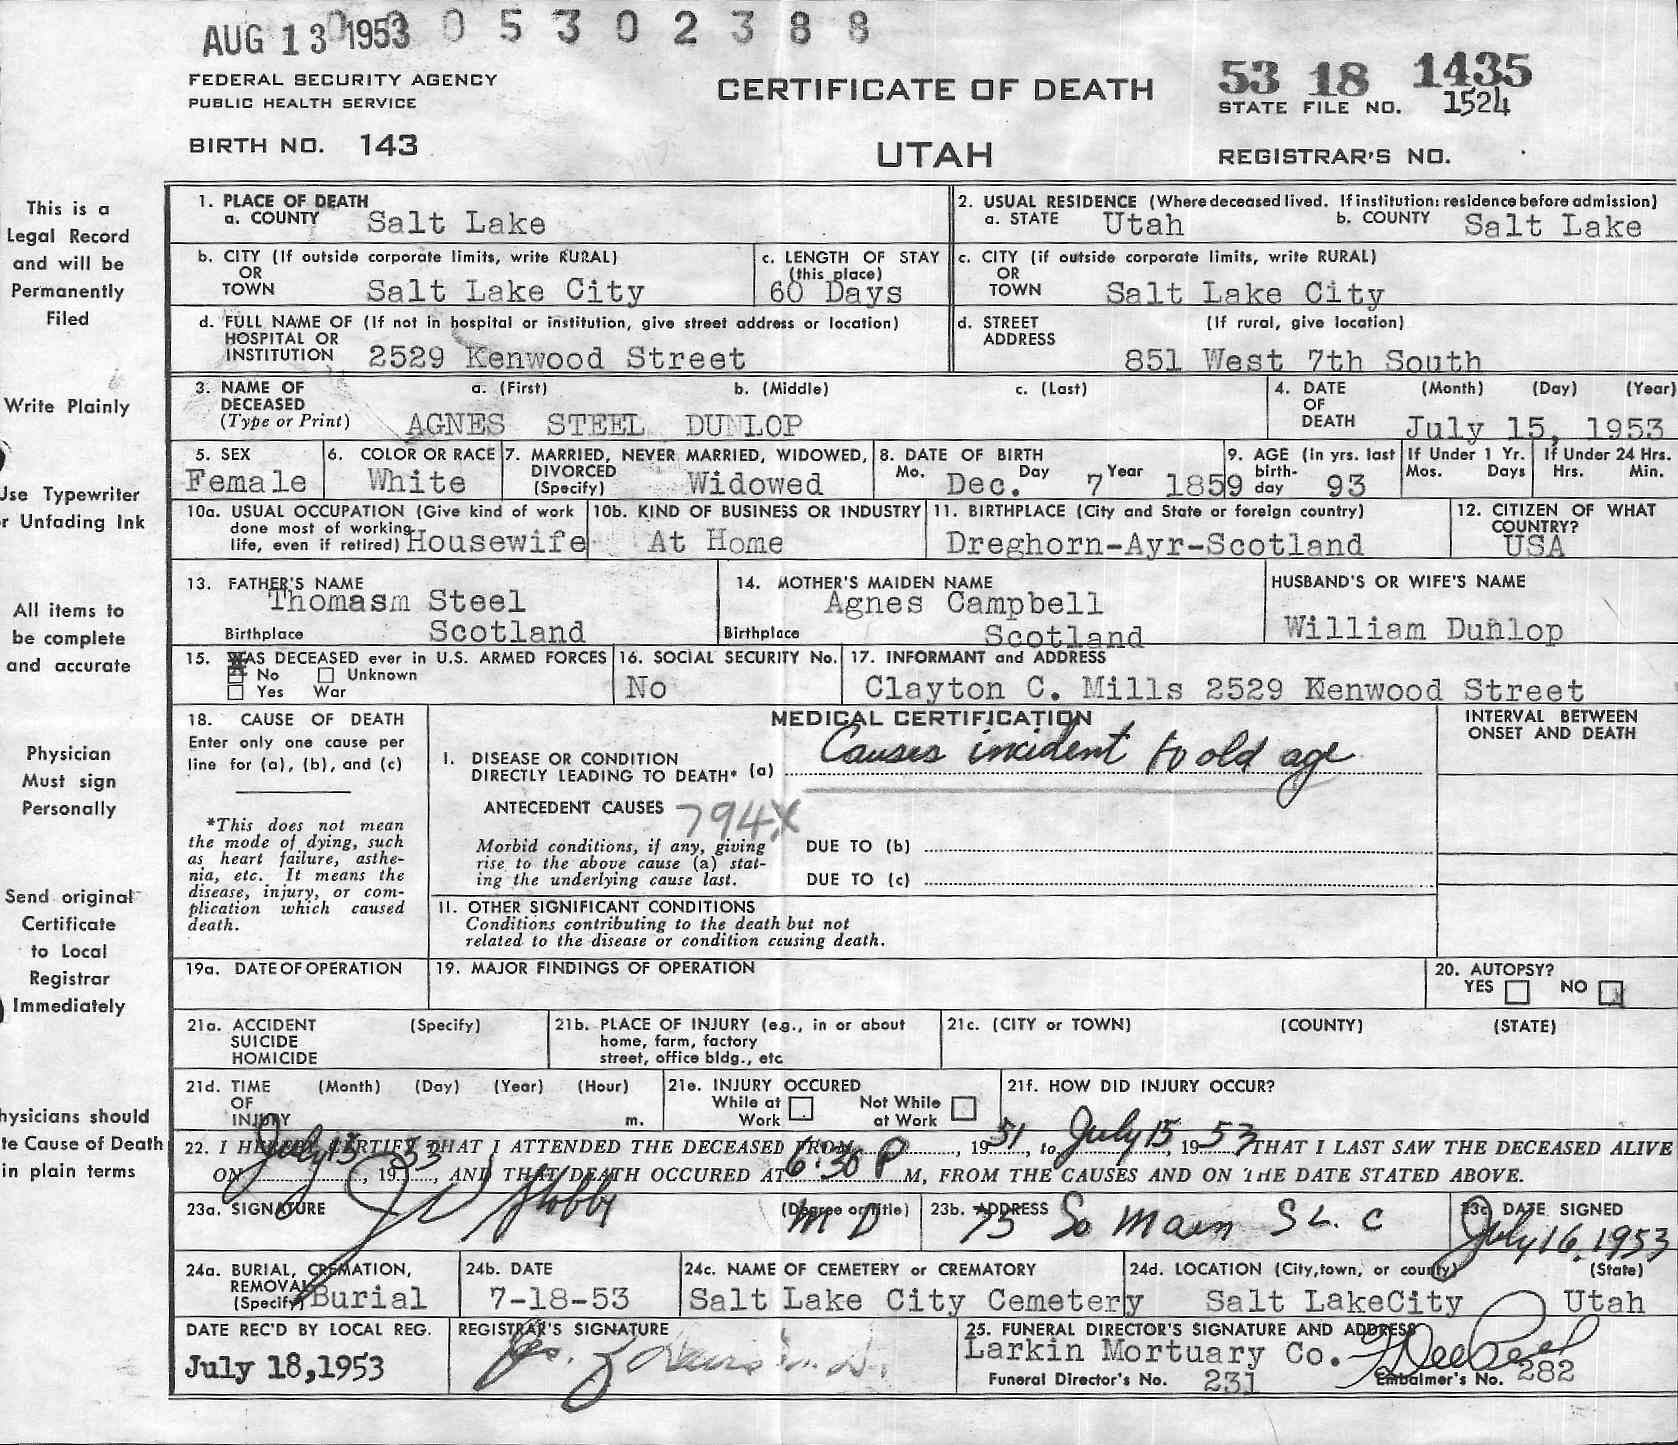 AUG 13 1953 0 0 5 3 0 2 3 8 8
FEDERAL SECURITY AGENCY
PUBLIC HEALTH SERVICE
BIRTH NO. 143
CERTIFICATE OF DEATH
UTAH
53 18 1435
STATE FILE NO. 1524
REGISTRAR'S NO.
This is a
Legal Record
and will be
Permanently
Filed
Write Plainly
Use Typewriter
or Unfading Ink
All items to
be complete
and accurate
Physician
Must sign
Personally
Send original
Certificate
to Local
Registrar
Immediately
hysicians should
te Cause of Death
in plain terms
1. PLACE OF DEATH
a. COUNTY Salt Lake
2. USUAL RESIDENCE (Where deceased lived. If institution: residence before admission)
a. STATE Utah b. COUNTY Salt Lake
b. CITY (If outside corporate limits, write RURAL)
OR
TOWN Salt Lake City
c. LENGTH OF STAY
(this place)
60 Days
c. CITY (if outside corporate limits, write RURAL)
OR
TOWN Salt Lake City
d. FULL NAME OF (If not in hospital or institution, give street address or location)
HOSPITAL OR
INSTITUTION 2529 Kenwood Street
d. STREET (If rural, give location)
ADDRESS
851 West 7th South
3. NAME OF a. (First) b. (Middle) c. (Last)
DECEASED
(Type or Print) AGNES STEEL DUNLOP
4. DATE (Month) (Day) (Year)
OF
DEATH July 15, 1953
5. SEX
Female
6. COLOR OR RACE
White
7. MARRIED, NEVER MARRIED, WIDOWED,
DIVORCED
(Specify) Widowed
8. DATE OF BIRTH
Mo. Day Year
Dec. 7 1859
9. AGE (In yrs. last
birth-
day 93
If Under 1 Yr.
Mos. Days
If Under 24 Hrs.
Hrs. Min.
10a. USUAL OCCUPATION (Give kind of work
done most of working
life, even if retired) Housewife
10b. KIND OF BUSINESS OR INDUSTRY
At Home
11. BIRTHPLACE (City and State or foreign country)
Dreghorn-Ayr-Scotland
12. CITIZEN OF WHAT
COUNTRY?
USA
13. FATHER'S NAME
Thomasm Steel
Birthplace Scotland
14. MOTHER'S MAIDEN NAME
Agnes Campbell
Birthplace Scotland
HUSBAND'S OR WIFE'S NAME
William Dunlop
15. WAS DECEASED ever in U.S. ARMED FORCES
No Unknown
Yes War
16. SOCIAL SECURITY No.
No
17. INFORMANT and ADDRESS
Clayton C. Mills 2529 Kenwood Street
18. CAUSE OF DEATH
Enter only one cause per
line for (a), (b), and (c)
*This does not mean
the mode of dying, such
as heart failure, asthe-
nia, etc. It means the
disease, injury, or com-
plication which caused
death.
MEDICAL CERTIFICATION
I. DISEASE OR CONDITION
DIRECTLY LEADING TO DEATH* (a) Causes incident to old age
ANTECEDENT CAUSES 794X
Morbid conditions, if any, giving
rise to the above cause (a) stat-
ing the underlying cause last.
DUE TO (b)
DUE TO (c)
II. OTHER SIGNIFICANT CONDITIONS
Conditions contributing to the death but not
related to the disease or condition causing death.
INTERVAL BETWEEN
ONSET AND DEATH
19a. DATE OF OPERATION
19. MAJOR FINDINGS OF OPERATION
20. AUTOPSY?
YES NO
21a. ACCIDENT (Specify)
SUICIDE
HOMICIDE
21b. PLACE OF INJURY (e.g., in or about
home, farm, factory
street, office bldg., etc
21c. (CITY or TOWN) (COUNTY) (STATE)
21d. TIME (Month) (Day) (Year) (Hour)
OF
INJURY m.
21e. INJURY OCCURED
While at Work
Not While at Work
21f. HOW DID INJURY OCCUR?
22. I HEREBY CERTIFY THAT I ATTENDED THE DECEASED FROM , 1951, to July 15, 1953 THAT I LAST SAW THE DECEASED ALIVE
ON July 15, 1953, AND THAT DEATH OCCURED AT 6:30 P M, FROM THE CAUSES AND ON THE DATE STATED ABOVE.
23a. SIGNATURE (Degree or Title) M D
23b. ADDRESS 75 So Main S L. C
23c. DATE SIGNED
July 16, 1953
24a. BURIAL, CREMATION,
REMOVAL
(Specify) Burial
24b. DATE
7-18-53
24c. NAME OF CEMETERY or CREMATORY
Salt Lake City Cemetery
24d. LOCATION (City, town, or county) (State)
Salt LakeCity Utah
DATE REC'D BY LOCAL REG.
July 18,1953
REGISTRAR'S SIGNATURE
25. FUNERAL DIRECTOR'S SIGNATURE AND ADDRESS
Larkin Mortuary Co.
Funeral Director's No. 231
Embalmer's No. 282